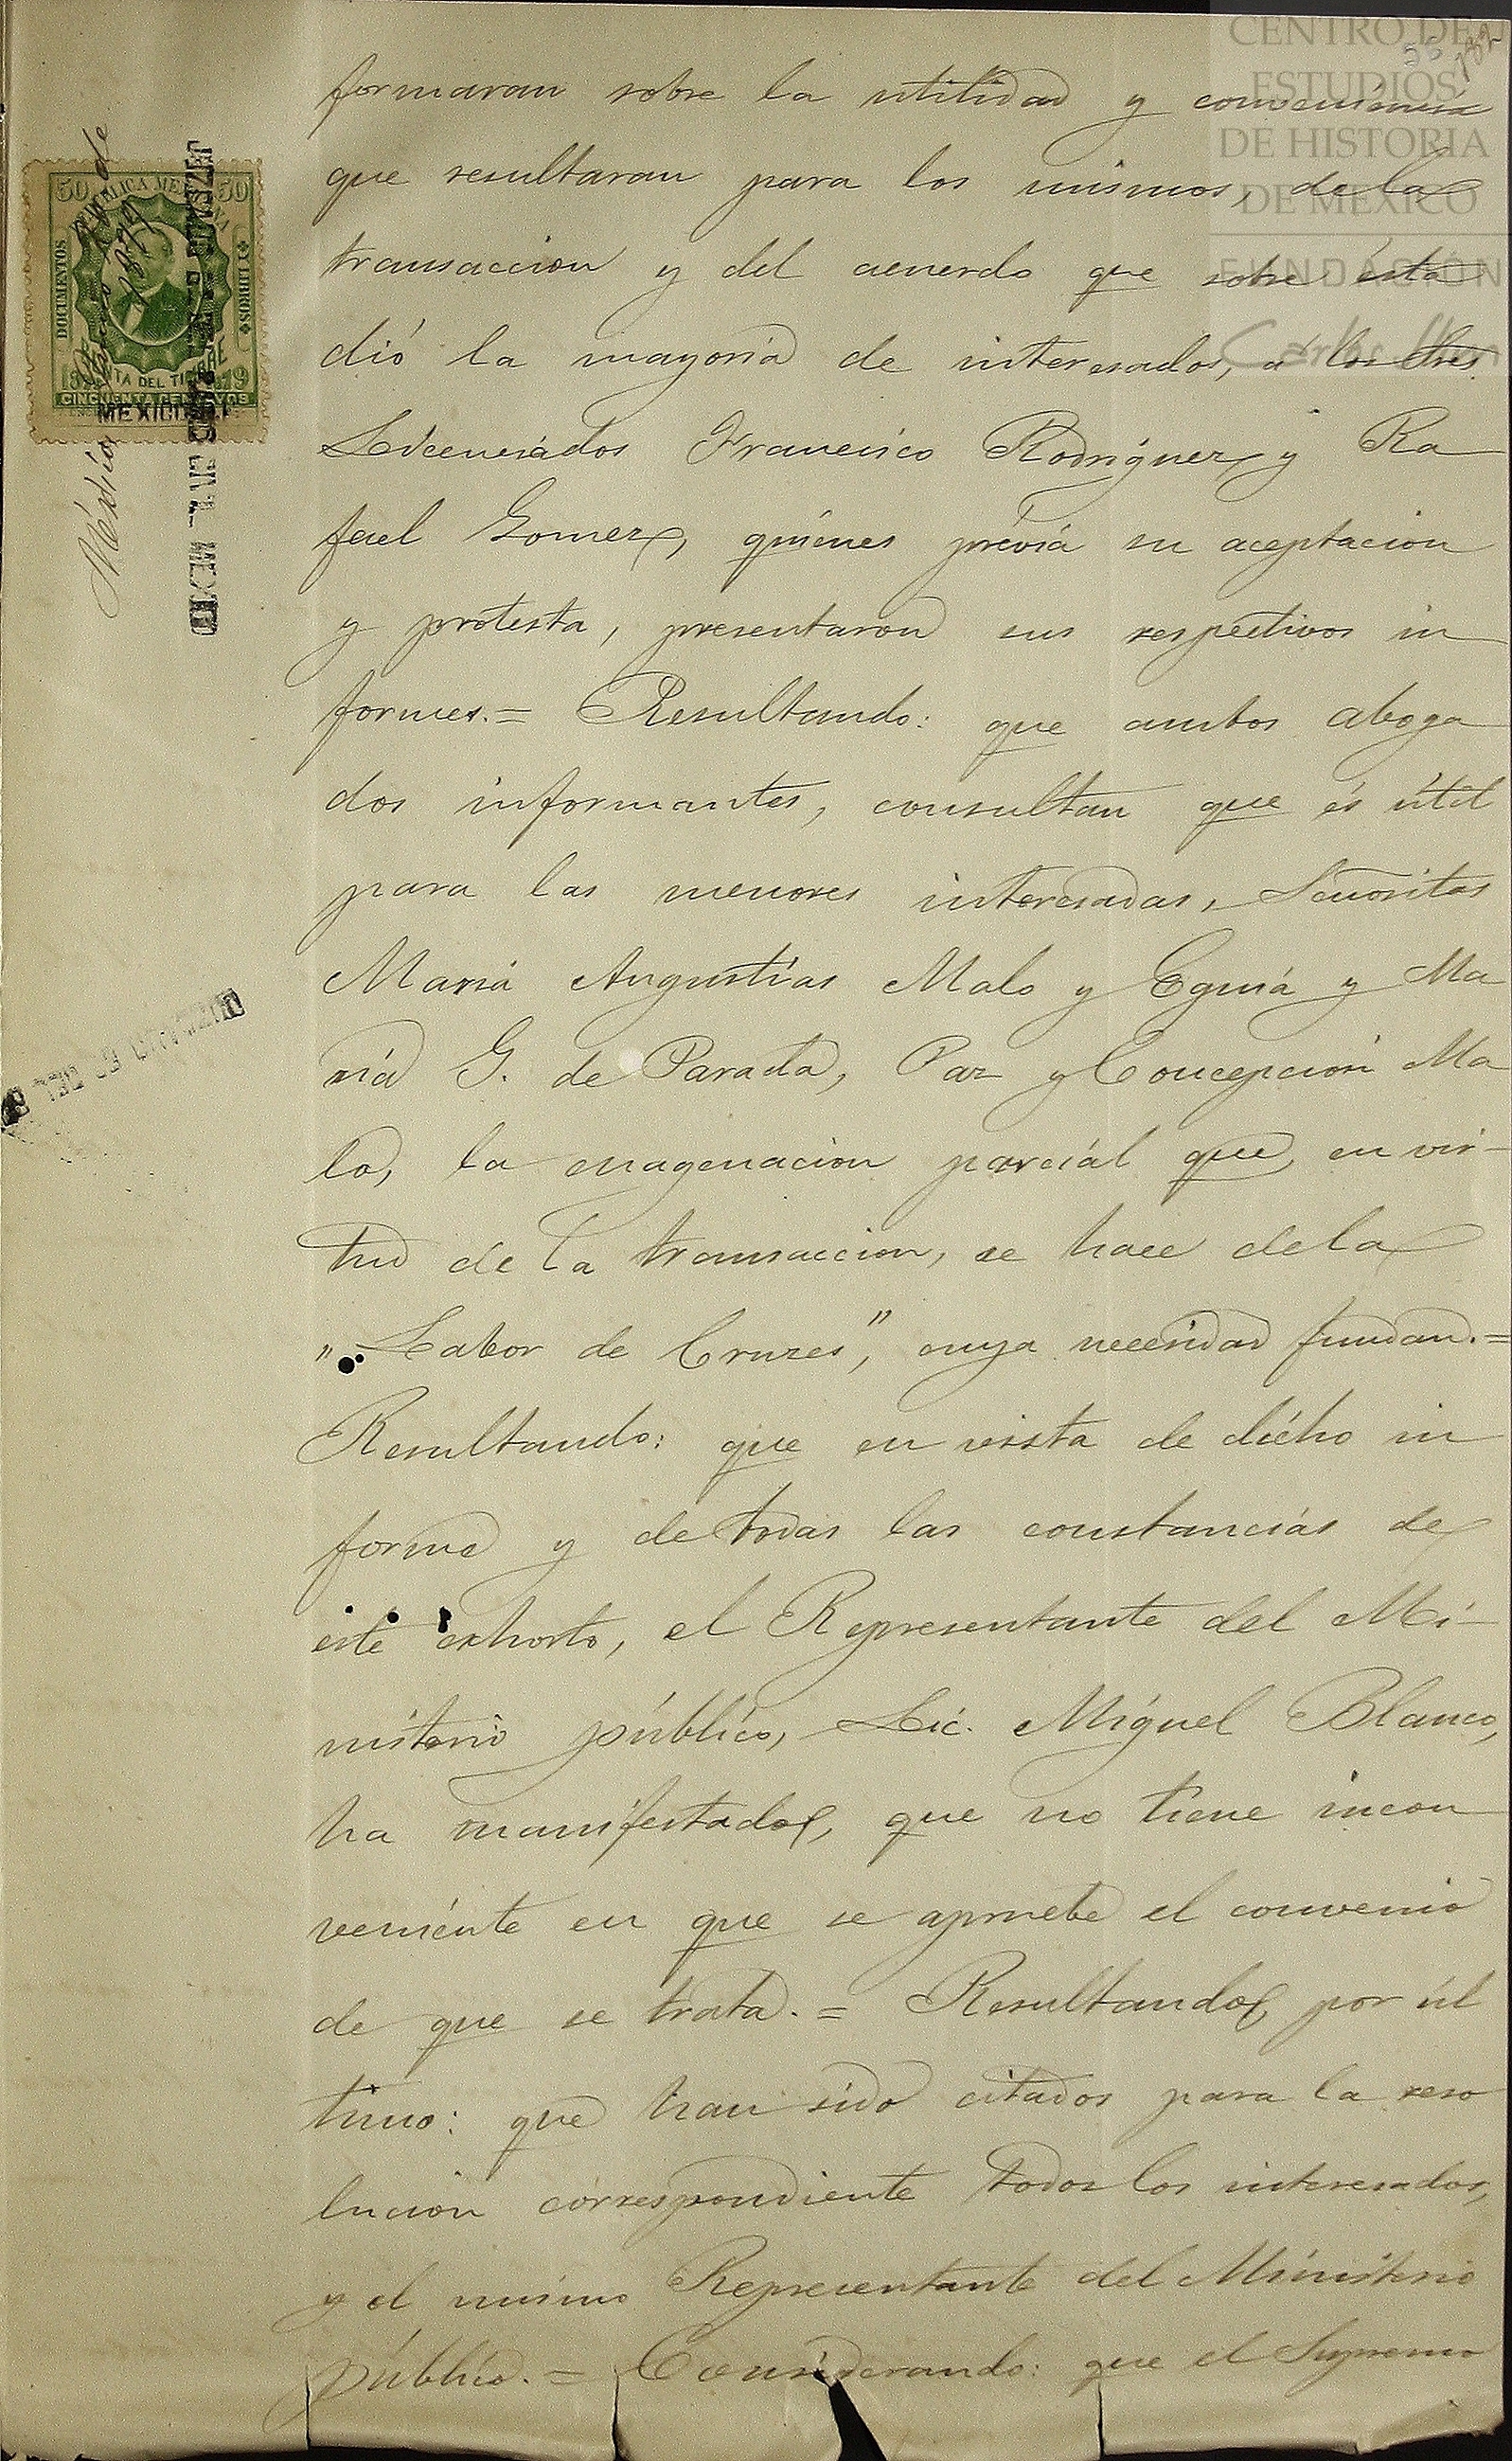 CENTRO DE
ESTUDIOS
DE HISTORIA
DE MÉXICO
FUNDACIÓN
Carlos Slim
50 50
DOCUMENTOS
Y LIBROS
RENTA DEL TIMBRE
CINCUENTA CENTAVOS
MEXICO
México
formaran sobre la utilidad y conveniencia
que resultaran para los mismos, de la
transaccion y del acuerdo que sobre ésta
dió la mayoria de interesados, á los Sres.
Licenciados Francisco Rodriguez y Ra
fael Gomez, quiénes prévia su aceptacion
y protesta, presentaron sus respectivos in
formes.= Resultando: que ambos aboga
dos informantes, consultan que és útil
para las menores interesadas, Señoritas
Maria Angustias Malo y Eguiá y Ma
ria G. de Parada, Paz y Concepcion Ma
lo, la enagenacion parcial que, en vir-
tud de la transaccion, se hace de la
"Labor de Cruzes", cuya necesidad fundan.=
Resultando: que en vista de dicho in
forme y de todas las constancias de
este exhorto, el Representante del Mi-
nisterio público, Lic. Miguel Blanco,
ha manifestado, que no tiene incon
veniente en que se apruebe el convenio
de que se trata.= Resultando, por úl
timo: que han sido citados para la reso
lucion correspondiente todos los interesados,
y el mismo Representante del Ministerio
público.= Considerando: que el Supremo